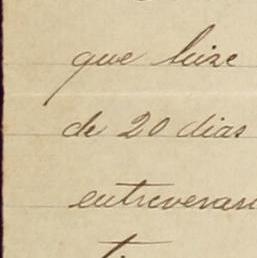 que luize
de 20 dias
entreveran